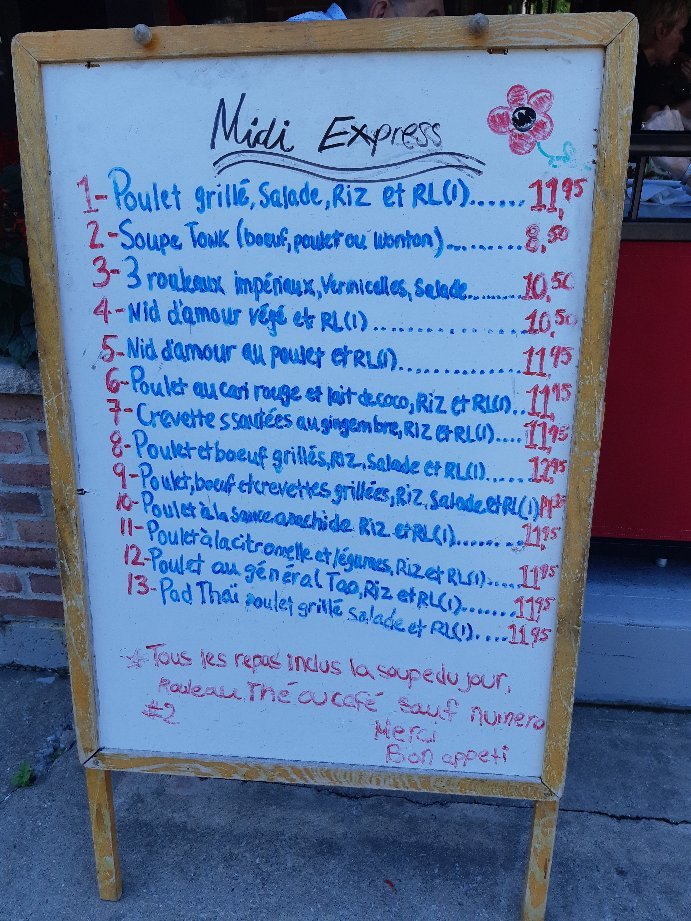 Midi Express
1-Poulet grillé, Salade, Riz et RL(1)......11,95
2-Soupe Tonk (boeuf, poulet ou wonton)..........8,50
3-3 rouleaux impériaux, Vermicelles, Salade..........10,50
4-Nid d'amour végé et RL(1)................10,50
5-Nid d'amour au poulet et RL(1).............11,95
6-Poulet au cari rouge et lait de coco, Riz et RL(1)..11,95
7-Crevettes sautées au gingembre, Riz et RL(1)....11,95
8-Poulet et boeuf grillés, Riz, Salade et RL(1).....12,95
9-Poulet, boeuf et crevettes grillées, Riz, Salade et RL(1)
10-Poulet à la sauce arachide Riz et RL(1)........11,95
11-Poulet à la citronelle et légumes, Riz et RL(1).....11,95
12-Poulet au général Tao, Riz et RL(1).......11,95
13-Pad Thaï poulet grillé salade et RL(1)....11,95
*Tous les repas inclus la soupe du jour,
Rouleau Thé ou café sauf numero
#2
Merci
Bon appeti